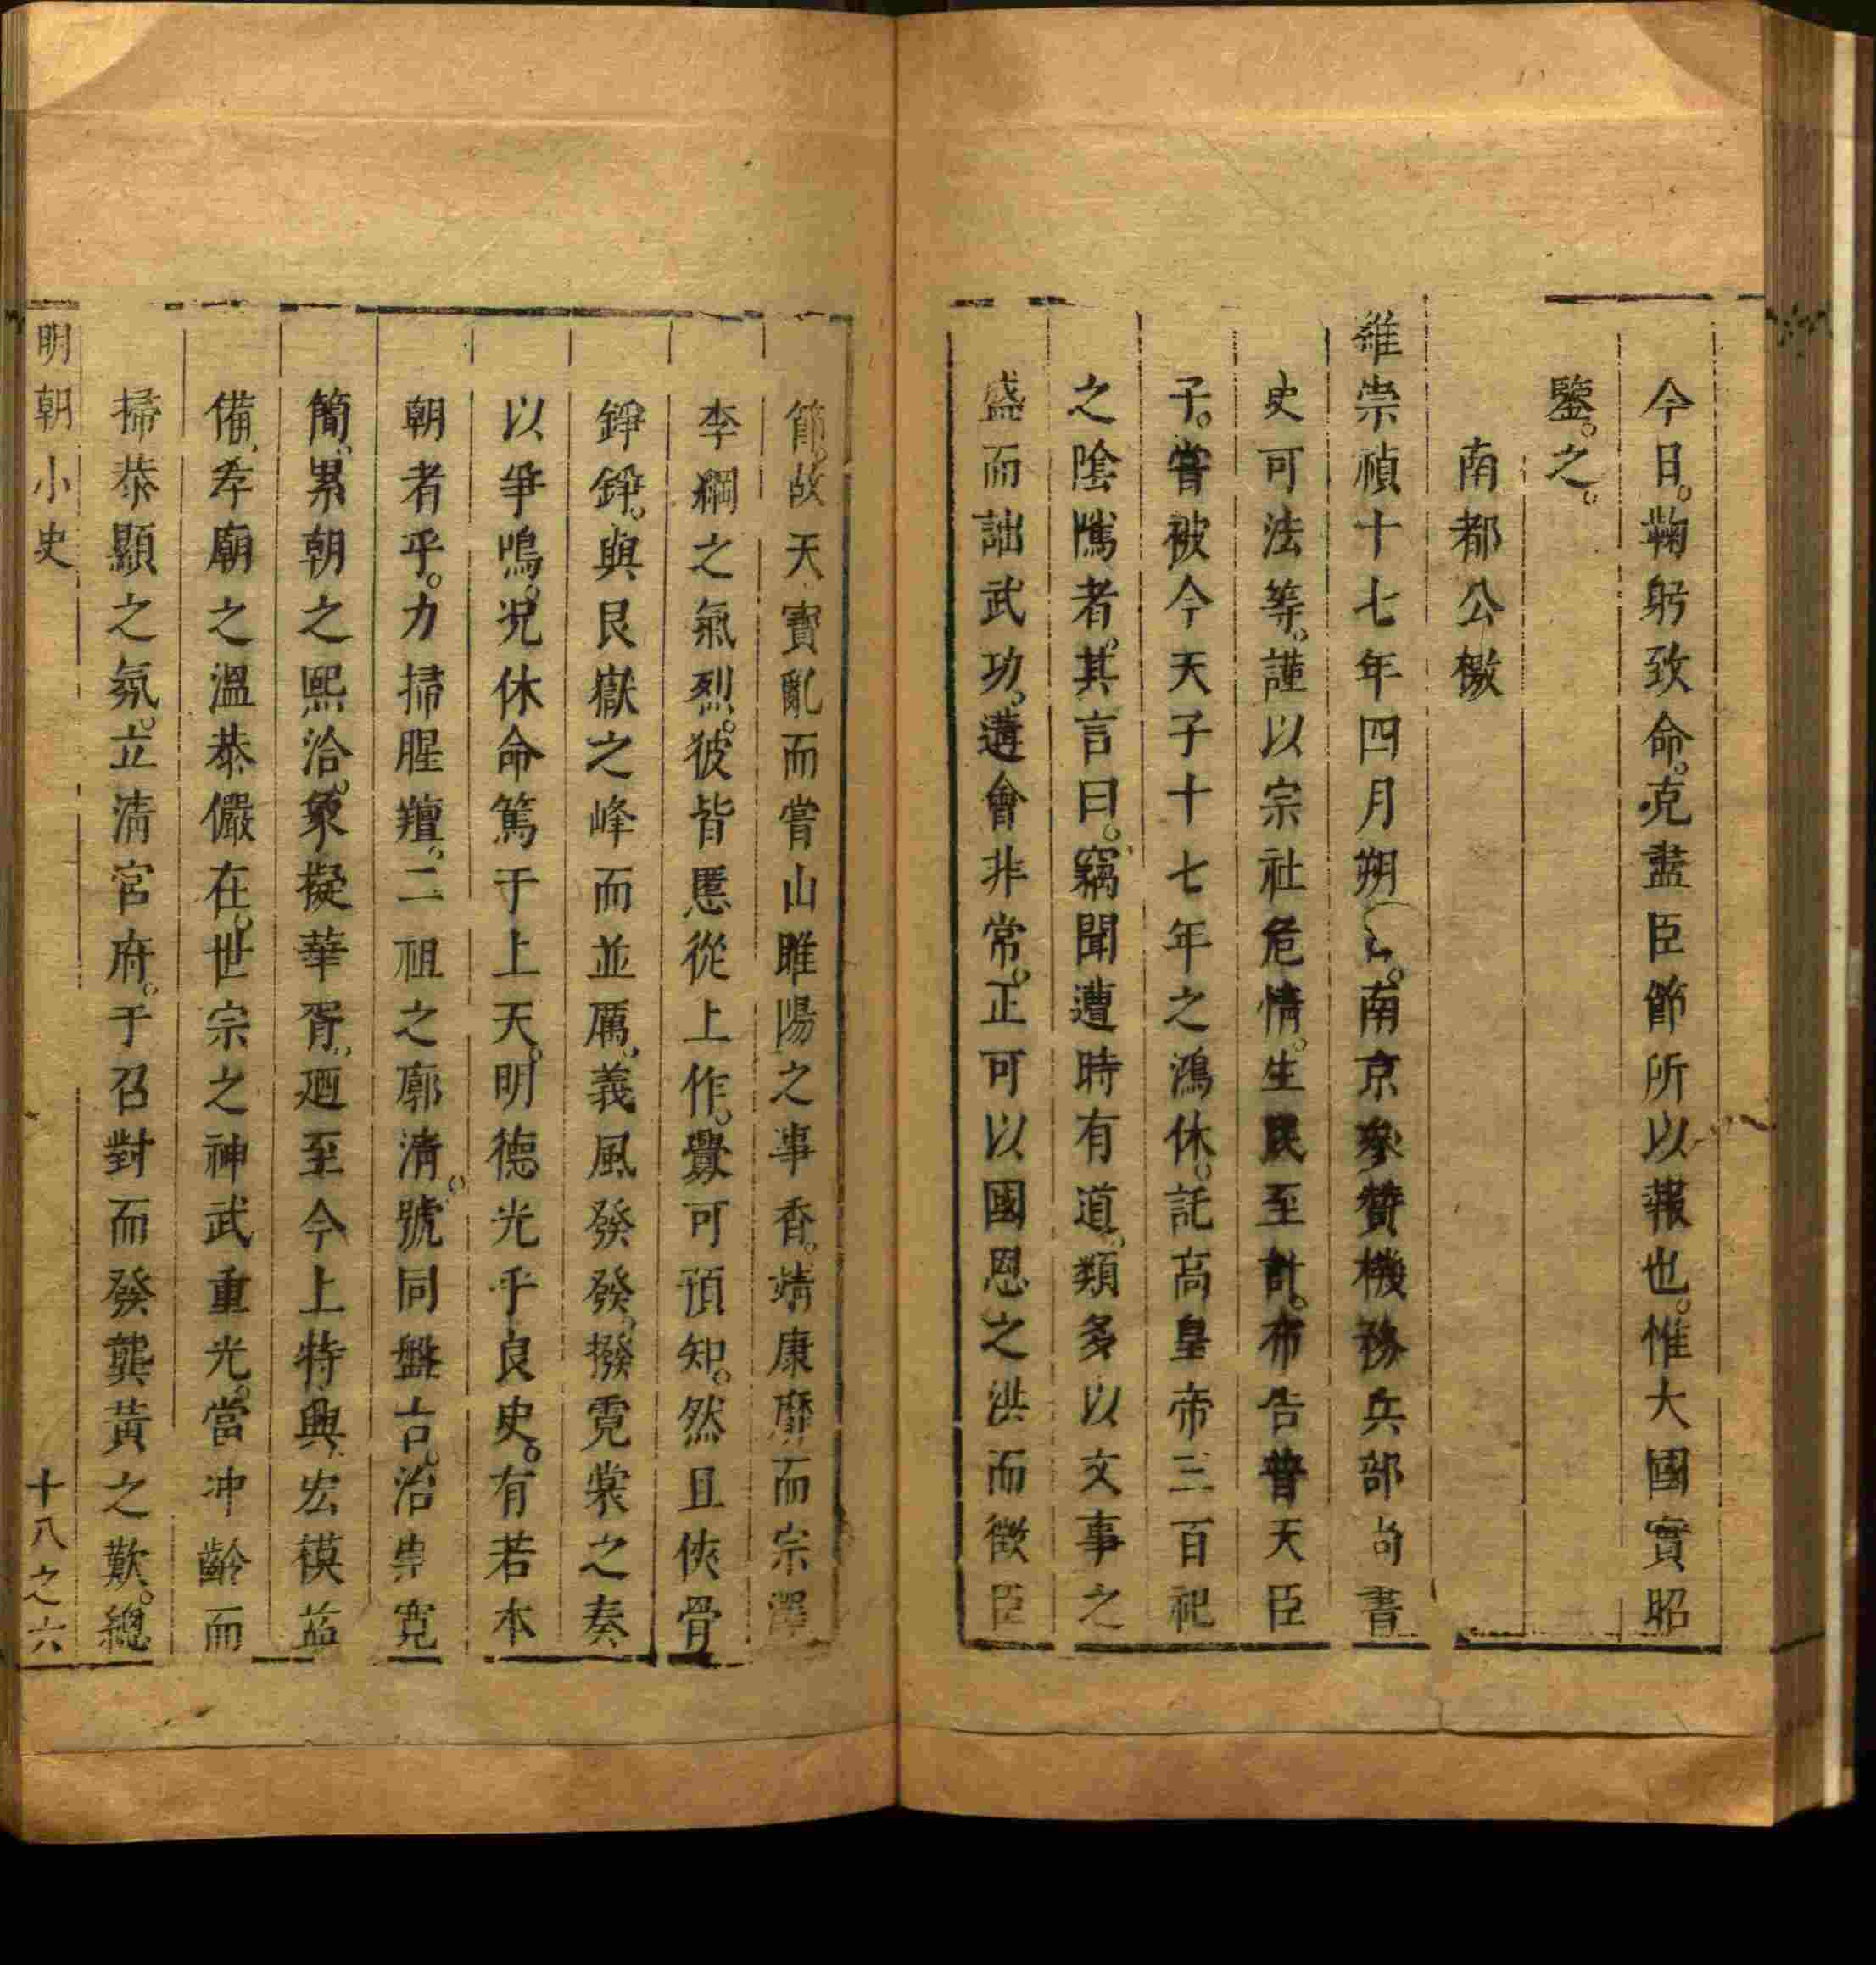 今日。鞠躬致命。克盡臣節所以報也。惟大國實昭
鑒。之。
南都公檄
維崇禎十七年四月朔。南京參贊機務兵部尚書
史可法等。謹以宗社危情。生民至計。布告普天臣
子。嘗被今天子十七年之鴻休。託高皇帝三百祀
之陰隲者。其言曰。竊聞遭時有道。類多以文事之
盛而詘武功。遘會非常。正可以國恩之洪而徵臣
節。故天寶亂而嘗山睢陽之事香。靖康靡而宗澤
李綱之氣烈。彼皆慝從上作。釁可預知。然且俠骨
錚錚。與艮嶽之峰而並厲。義風發發。撥霓裳之奏
以爭鳴。况休命篤于上天。明德光乎良史。有若本
朝者乎。力掃腥羶。二祖之廓清。號同盤古。治崇寬
簡。累朝之熙洽。象擬華胥。迺至今上特興。宏模益
備。孝廟之溫恭儼在。世宗之神武重光。當冲齡而
掃恭顯之氛。立清宮府。于召對而發龔黃之歎。總
明朝小史
十八之六